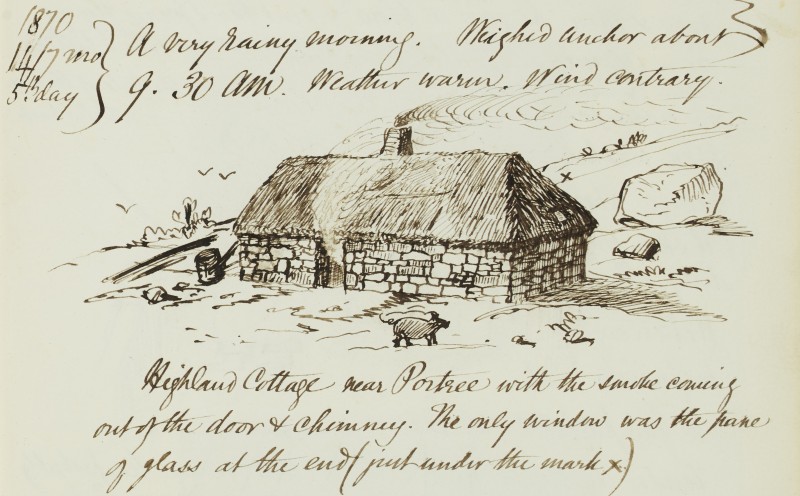 1870
14/7 mo
5th day
A very rainy morning. Weighed anchor about
9. 30 AM. Weather warm. Wind contrary.
x
Highland Cottage near Portree with the smoke coming
out of the door & chimney. The only window was the pane
of glass at the end (just under the mark x)